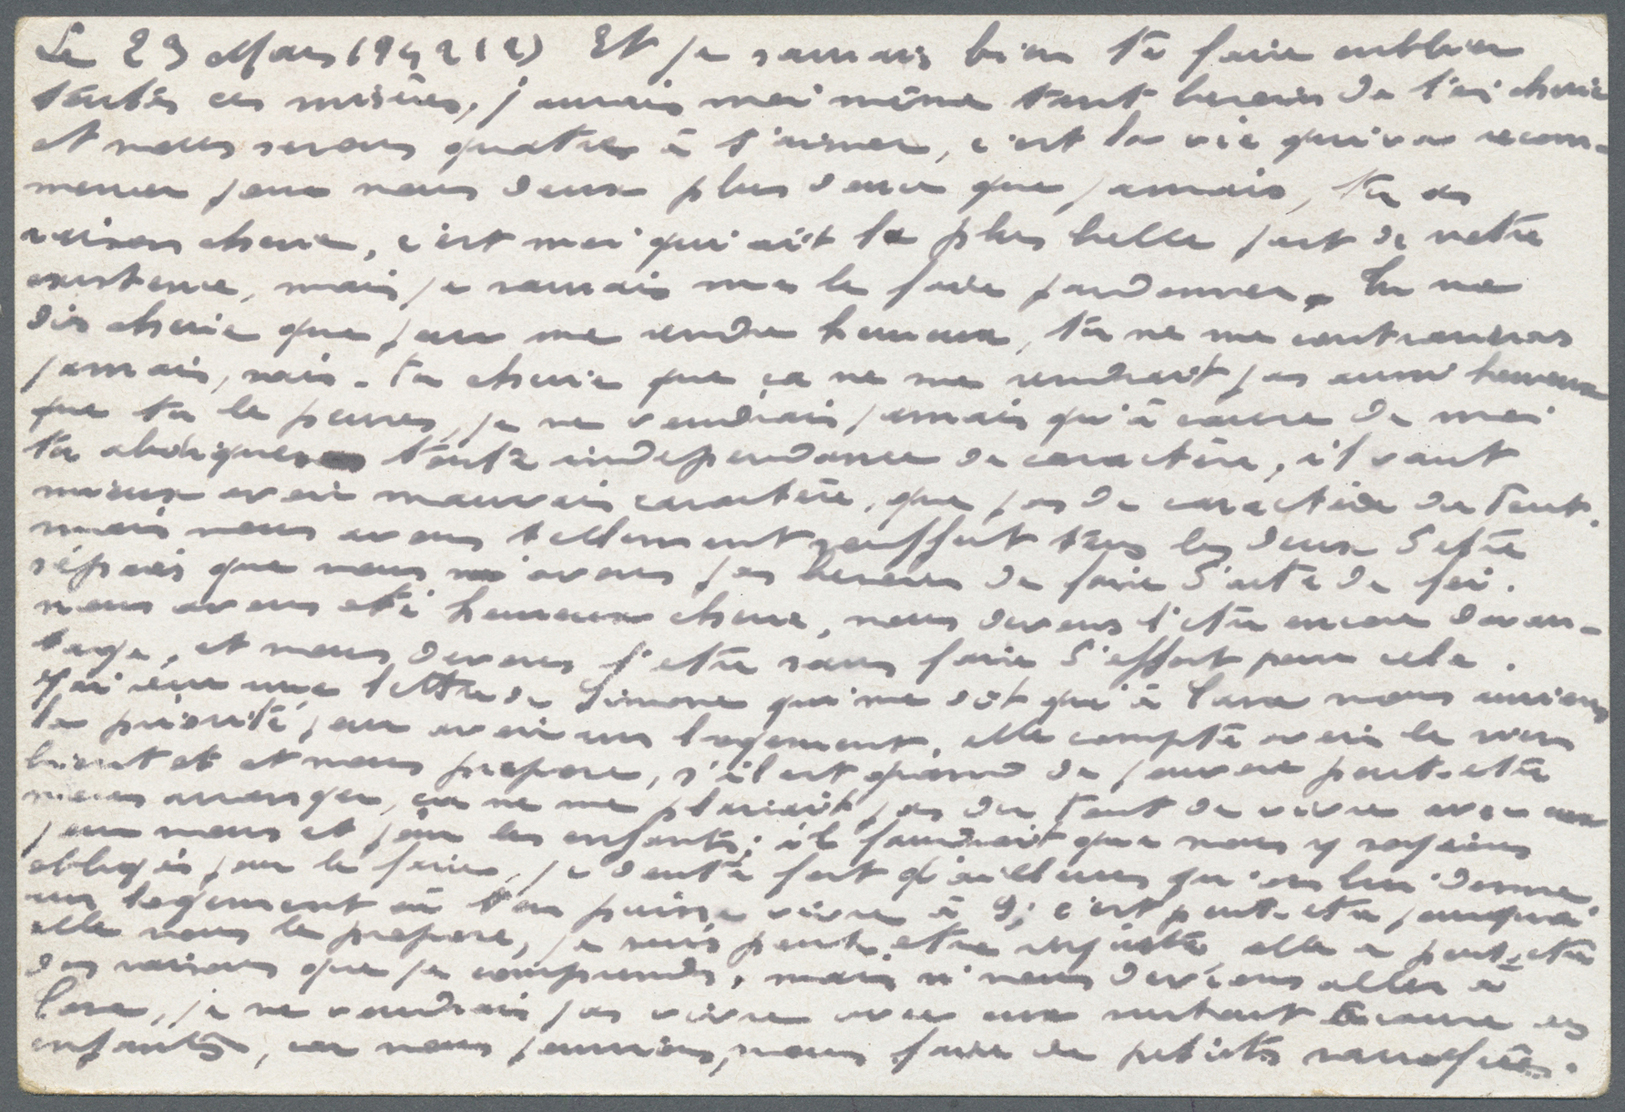 Le 23 Mars 1942 (2) Et je saurais bien te faire oublier
toutes ces misères, j'aurais moi même tant besoin de toi chérie
et nous serons quatre à t'aimer, c'est la vie qui va recom-
mencer pour nous deux plus douce que jamais, tu as
raison chérie, c'est moi qui ait la plus belle part de notre
existence, mais je saurais me le faire pardonner. Tu me
dis chérie que pour me rendre heureux, tu ne me contrarieras
jamais, sais-tu chérie que ça ne me rendrait pas aussi heureux
que tu le penses, je ne voudrais jamais qu'à cause de moi
tu abdiques toute independance de caractère, il vaut
mieux avoir mauvais caractère, que pas de caractère du tout.
mais nous avons tellement souffert tous les deux d'etre
séparés que nous n'avons pas besoin de faire d'acte de foi.
nous avons été heureux chérie, nous devons l'etre encore davan-
tage, et nous devons l'etre sans faire d'effort pour cela.
J'ai reçu une lettre de Simone qui me dit qu'à nous aurions
la priorité pour avoir un logement, elle compte avoir le sien
bientot et nous propose, s'il est grand de pouvoir peut-etre
nous arranger, ça ne me plairait pas du tout de vivre avec eux
pour nous et pour les enfants; il faudrait que nous y soyions
obligés pour le faire, je doute fort d'ailleurs qu'on lui donne
un logement où l'on puisse vivre à 9; c'est peut-etre pourquoi
elle nous le propose, je suis peut etre injuste, elle a peut-etre
des raisons que je comprends, mais si nous devions aller à
je ne voudrais pas vivre avec eux surtout à cause des
enfants, car nous pourrions, nous faire de petits sacrifices.